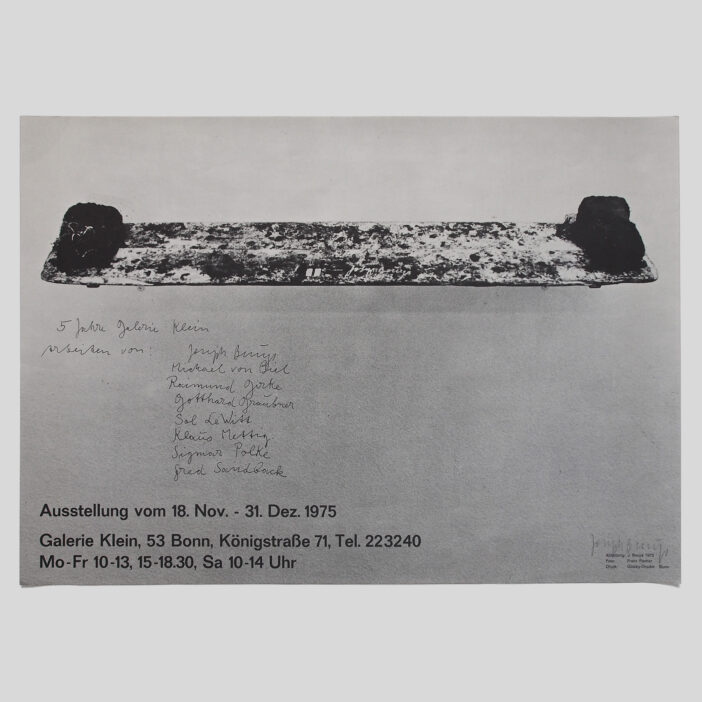 5 Jahre Galerie Klein
Arbeiten von: Joseph Beuys
Michael von Biel
Raimund Girke
Gotthard Graubner
Sol LeWitt
Klaus Mettig
Sigmar Polke
Fred Sandback
Ausstellung vom 18. Nov. - 31. Dez. 1975
Galerie Klein, 53 Bonn, Königstraße 71, Tel. 223240
Mo-Fr 10-13, 15-18.30, Sa 10-14 Uhr
Joseph Beuys
Abbildung: J. Beuys 1972
Foto: Franz Fischer
Druck: Bonn